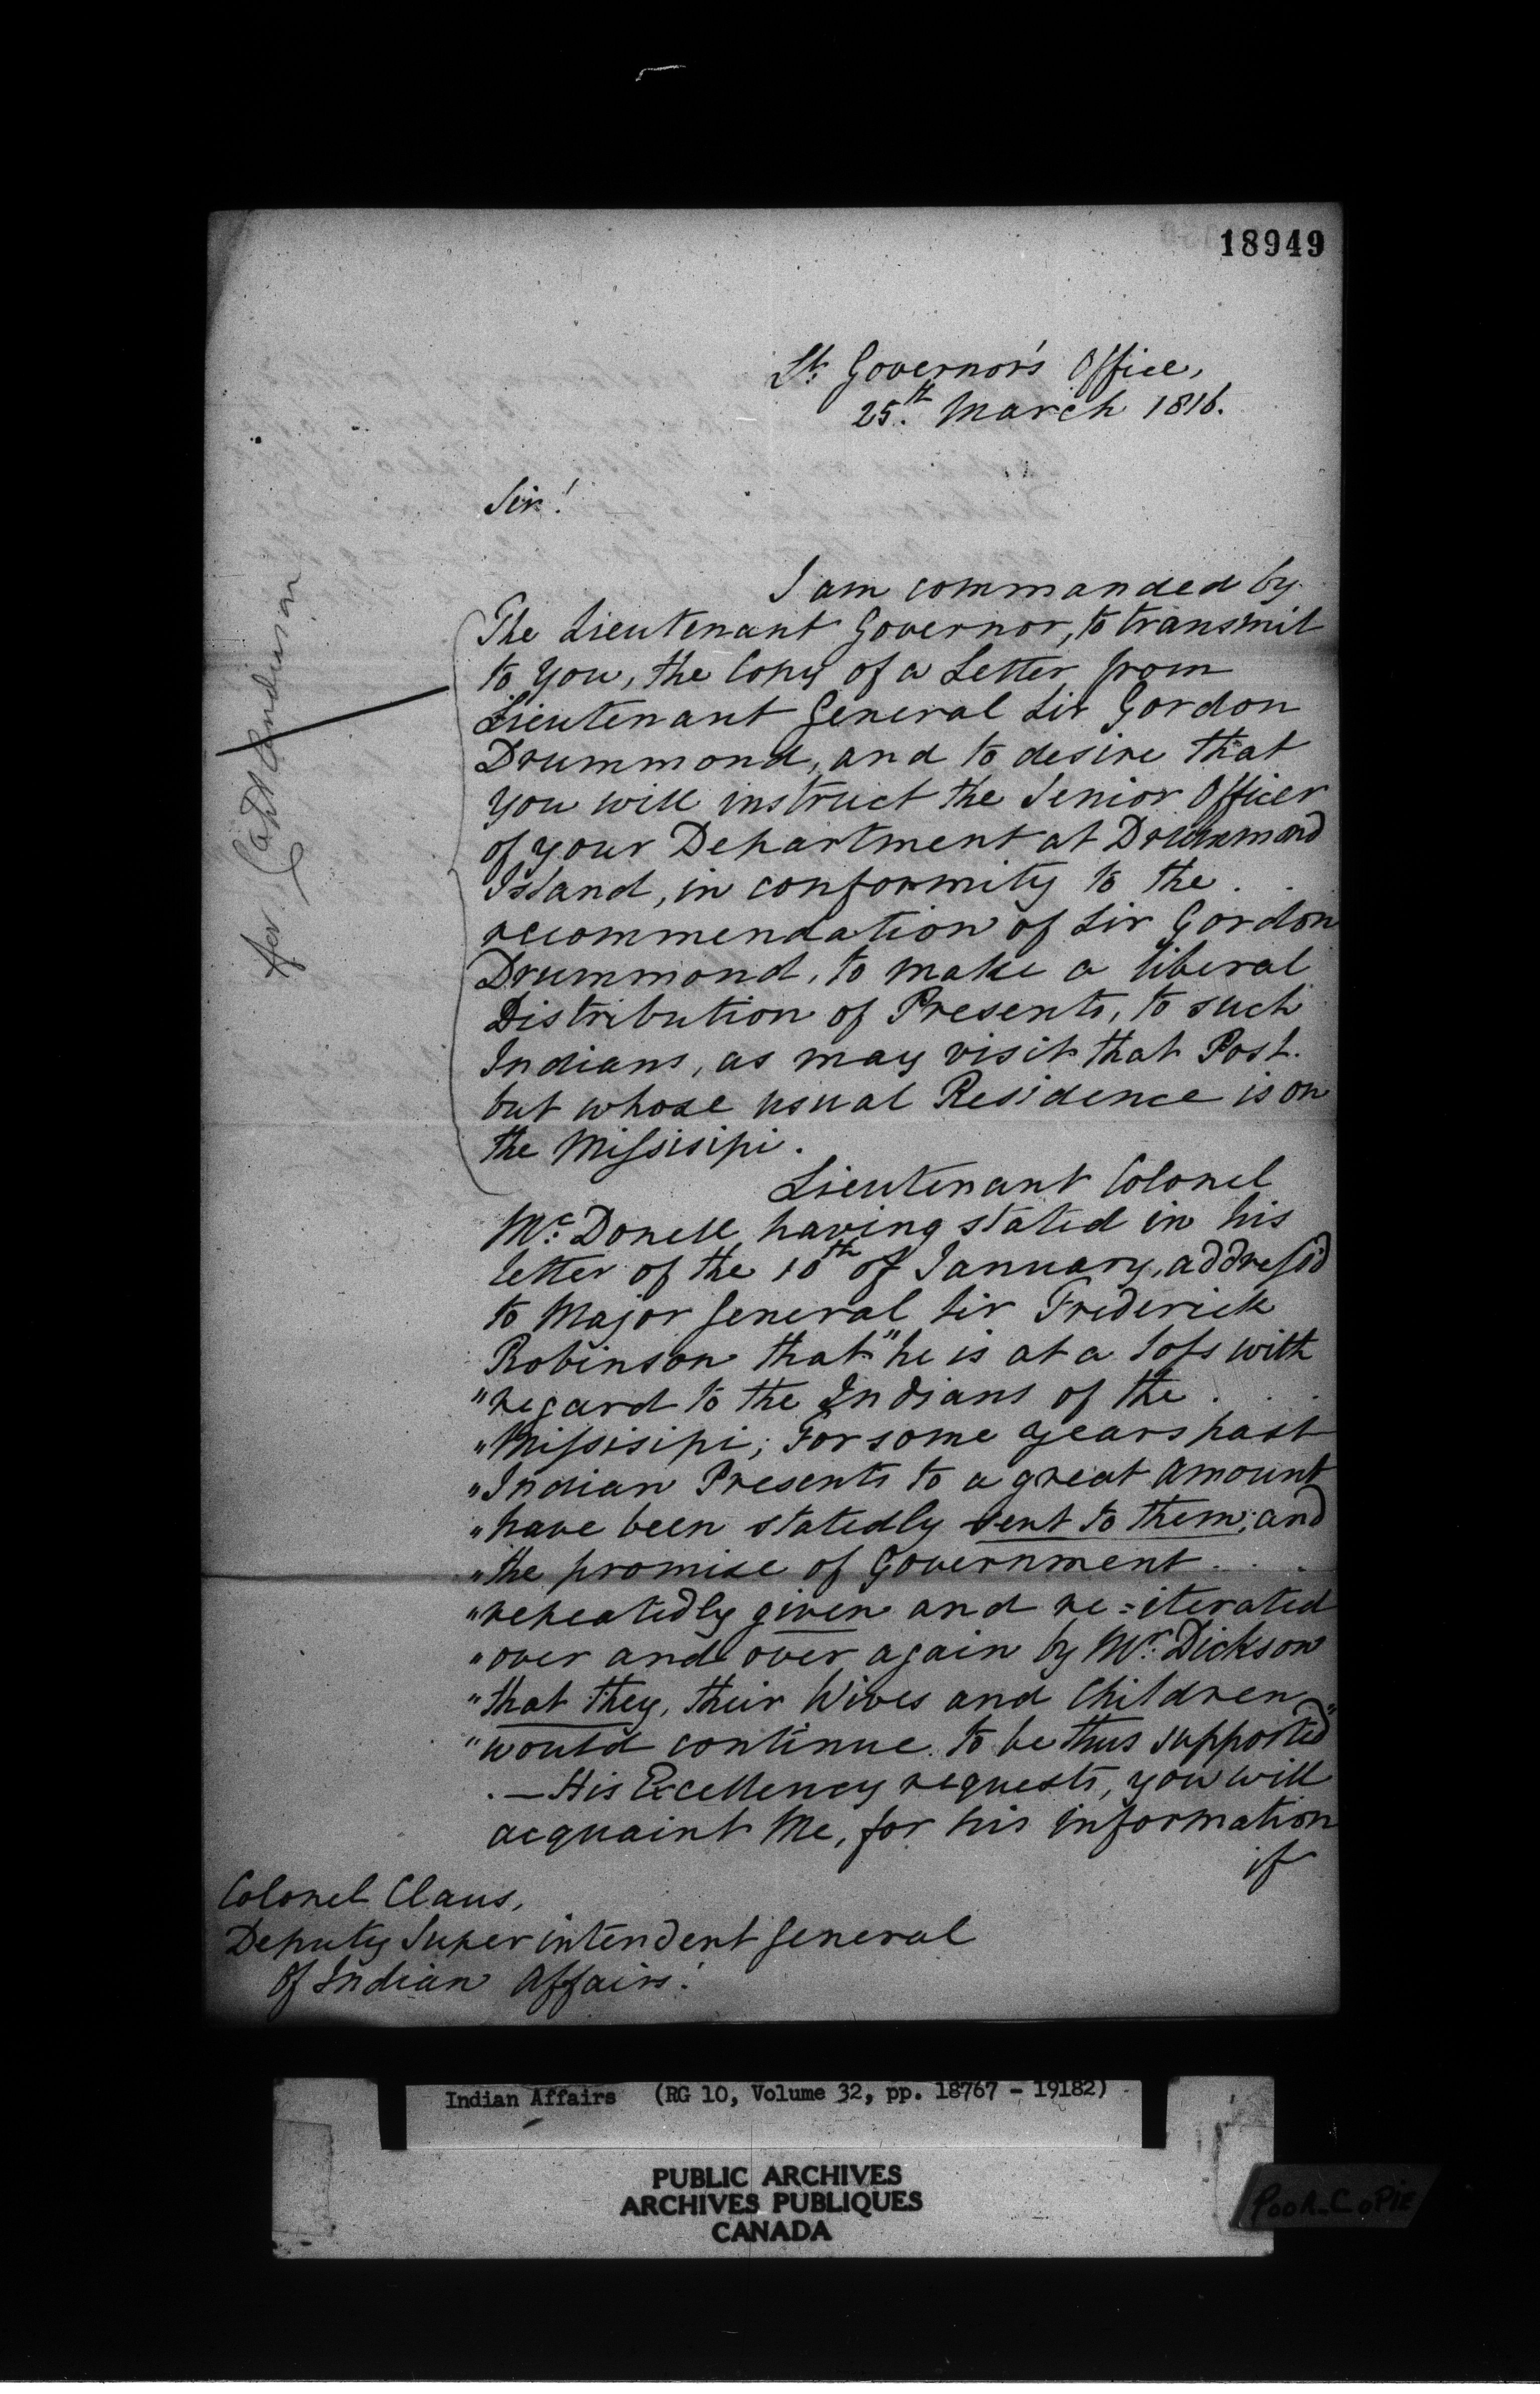 18949
Lt. Governor's Office,
25.th March 1816.
Sir!
I am commanded by
The Lieutenant Governor, to transmit
to You, the Copy of a Letter from
Lieutenant General Sir Gordon
Drummond, and to desire that
You will instruct the Senior Officer
of your Department at Drummond
Island, in conformity to the . .
recommendation of Sir Gordon
Drummond, to make a liberal
Distribution of Presents, to such
Indians, as may visit that Post.
but whose usual Residence is on
the Missisipi.
Lieutenant Colonel
Mc. Donell having stated in his
letter of the 10th of January, address'd
to Major General Sir Frederick
Robinson that "he is at a loss with
"regard to the Indians of the . . .
"Missisipi; For some years past
"Indian Presents to a great amount
"have been statedly sent to them; and
"the promise of Government . . .
"repeatedly given and re=iterated
"over and over again by Mr. Dickson
"that they, their Wives and Children
"would continue to be thus supported"
. — His Excellency requests, you will
acquaint Me, for his information
if
Colonel Claus,
Deputy Superintendent General
Of Indian Affairs.
for Capt Anderson
Indian Affairs (RG 10, Volume 32, pp. 18767 - 19182)
PUBLIC ARCHIVES
ARCHIVES PUBLIQUES
CANADA
POOR COPIE